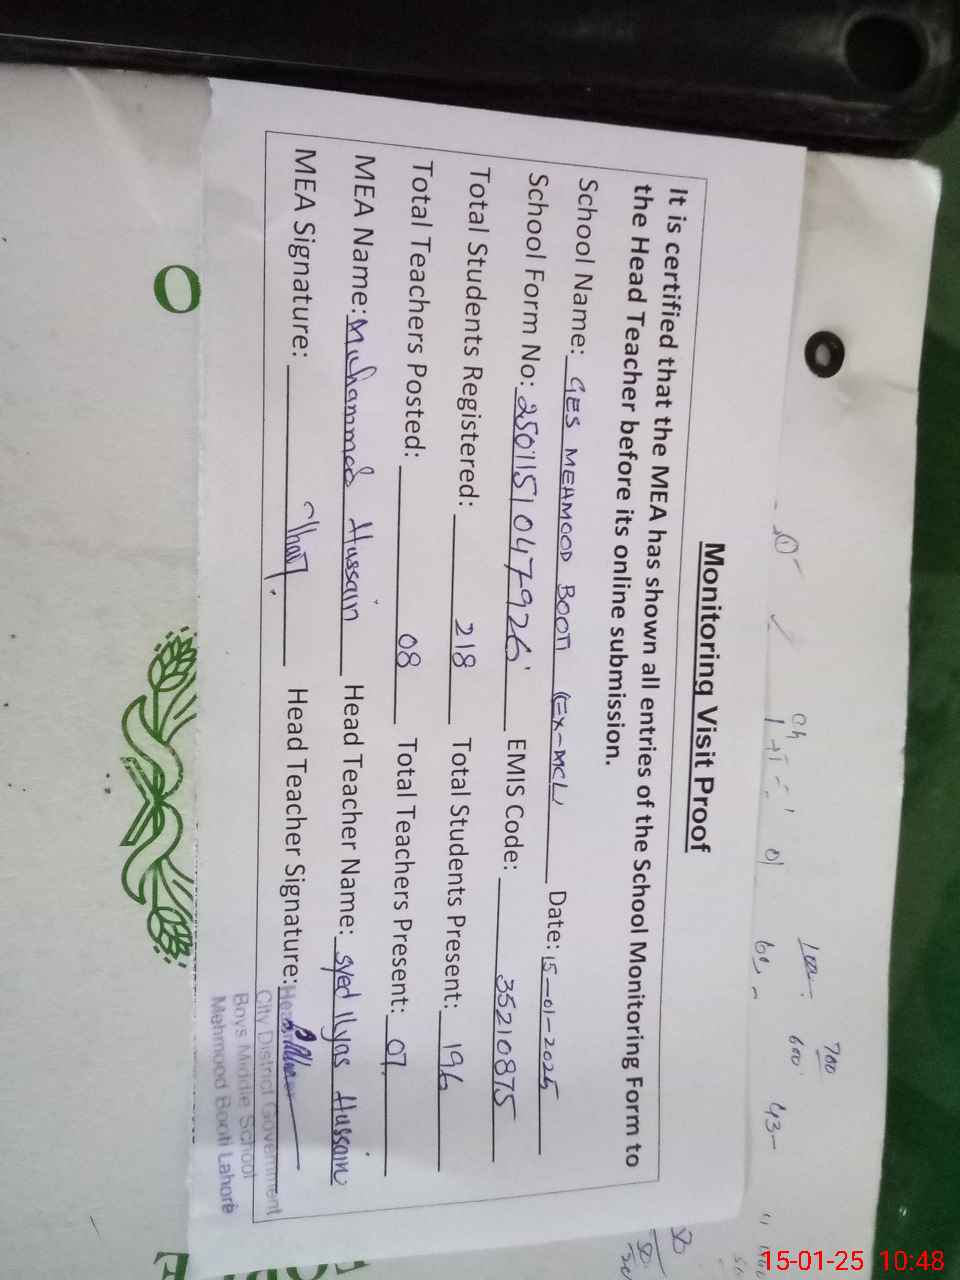 Monitoring Visit Proof
It is certified that the MEA has shown all entries of the School Monitoring Form to
the Head Teacher before its online submission.
School Name: GES MEHMOOD BOOTI (EX-MCL) Date: 15-01-2025
School Form No: 2501151047926 EMIS Code: 35210875
Total Students Registered: 218 Total Students Present: 196
Total Teachers Posted: 08 Total Teachers Present: 07
MEA Name: Muhammad Hussain Head Teacher Name: Syed Ilyas Hussain
MEA Signature: Head Teacher Signature:
City District Government
Boys Middle School
Mehmood Booti Lahore
700
600
43
15-01-25 10:48